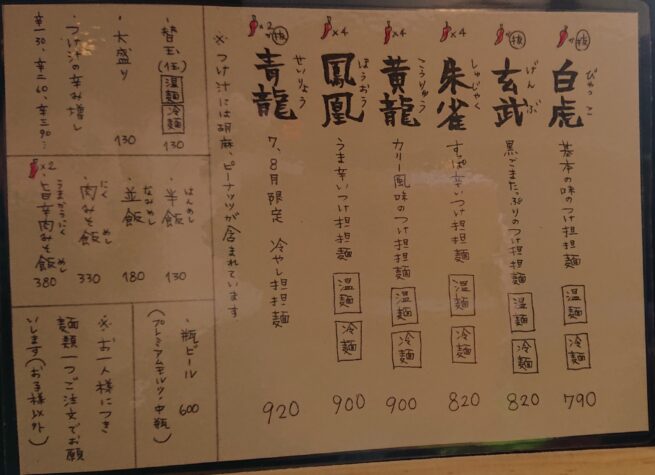 白虎
びゃっこ
抜
基本の味のつけ担担麺
温麺
冷麺
790
玄武
げんぶ
抜
黒ごまたっぷりのつけ担担麺
温麺
冷麺
820
×4
朱雀
しゅじゃく
すっぱ辛いつけ担担麺
温麺
冷麺
820
×4
黄龍
こうりゅう
カリー風味のつけ担担麺
温麺
冷麺
900
×4
鳳凰
ほうおう
うま辛いつけ担担麺
温麺
冷麺
900
×2
抜
青龍
せいりょう
7、8月限定 冷やし担担麺
920
※つけ汁には胡麻、ピーナッツが含まれています
・替玉(伍)
温麺
冷麺
130
・大盛り
130
・つけ汁の辛み増し
辛一30、辛二60、辛三90…
・半飯
はんめし
130
・並飯
なみめし
180
・肉みそ飯
にく めし
330
×2
・旨辛肉みそ飯
うまからにく めし
380
・瓶ビール
600
(プレミアムモルツ・中瓶)
※お一人様につき
麺類一つご注文でお願
いします(お子様以外)